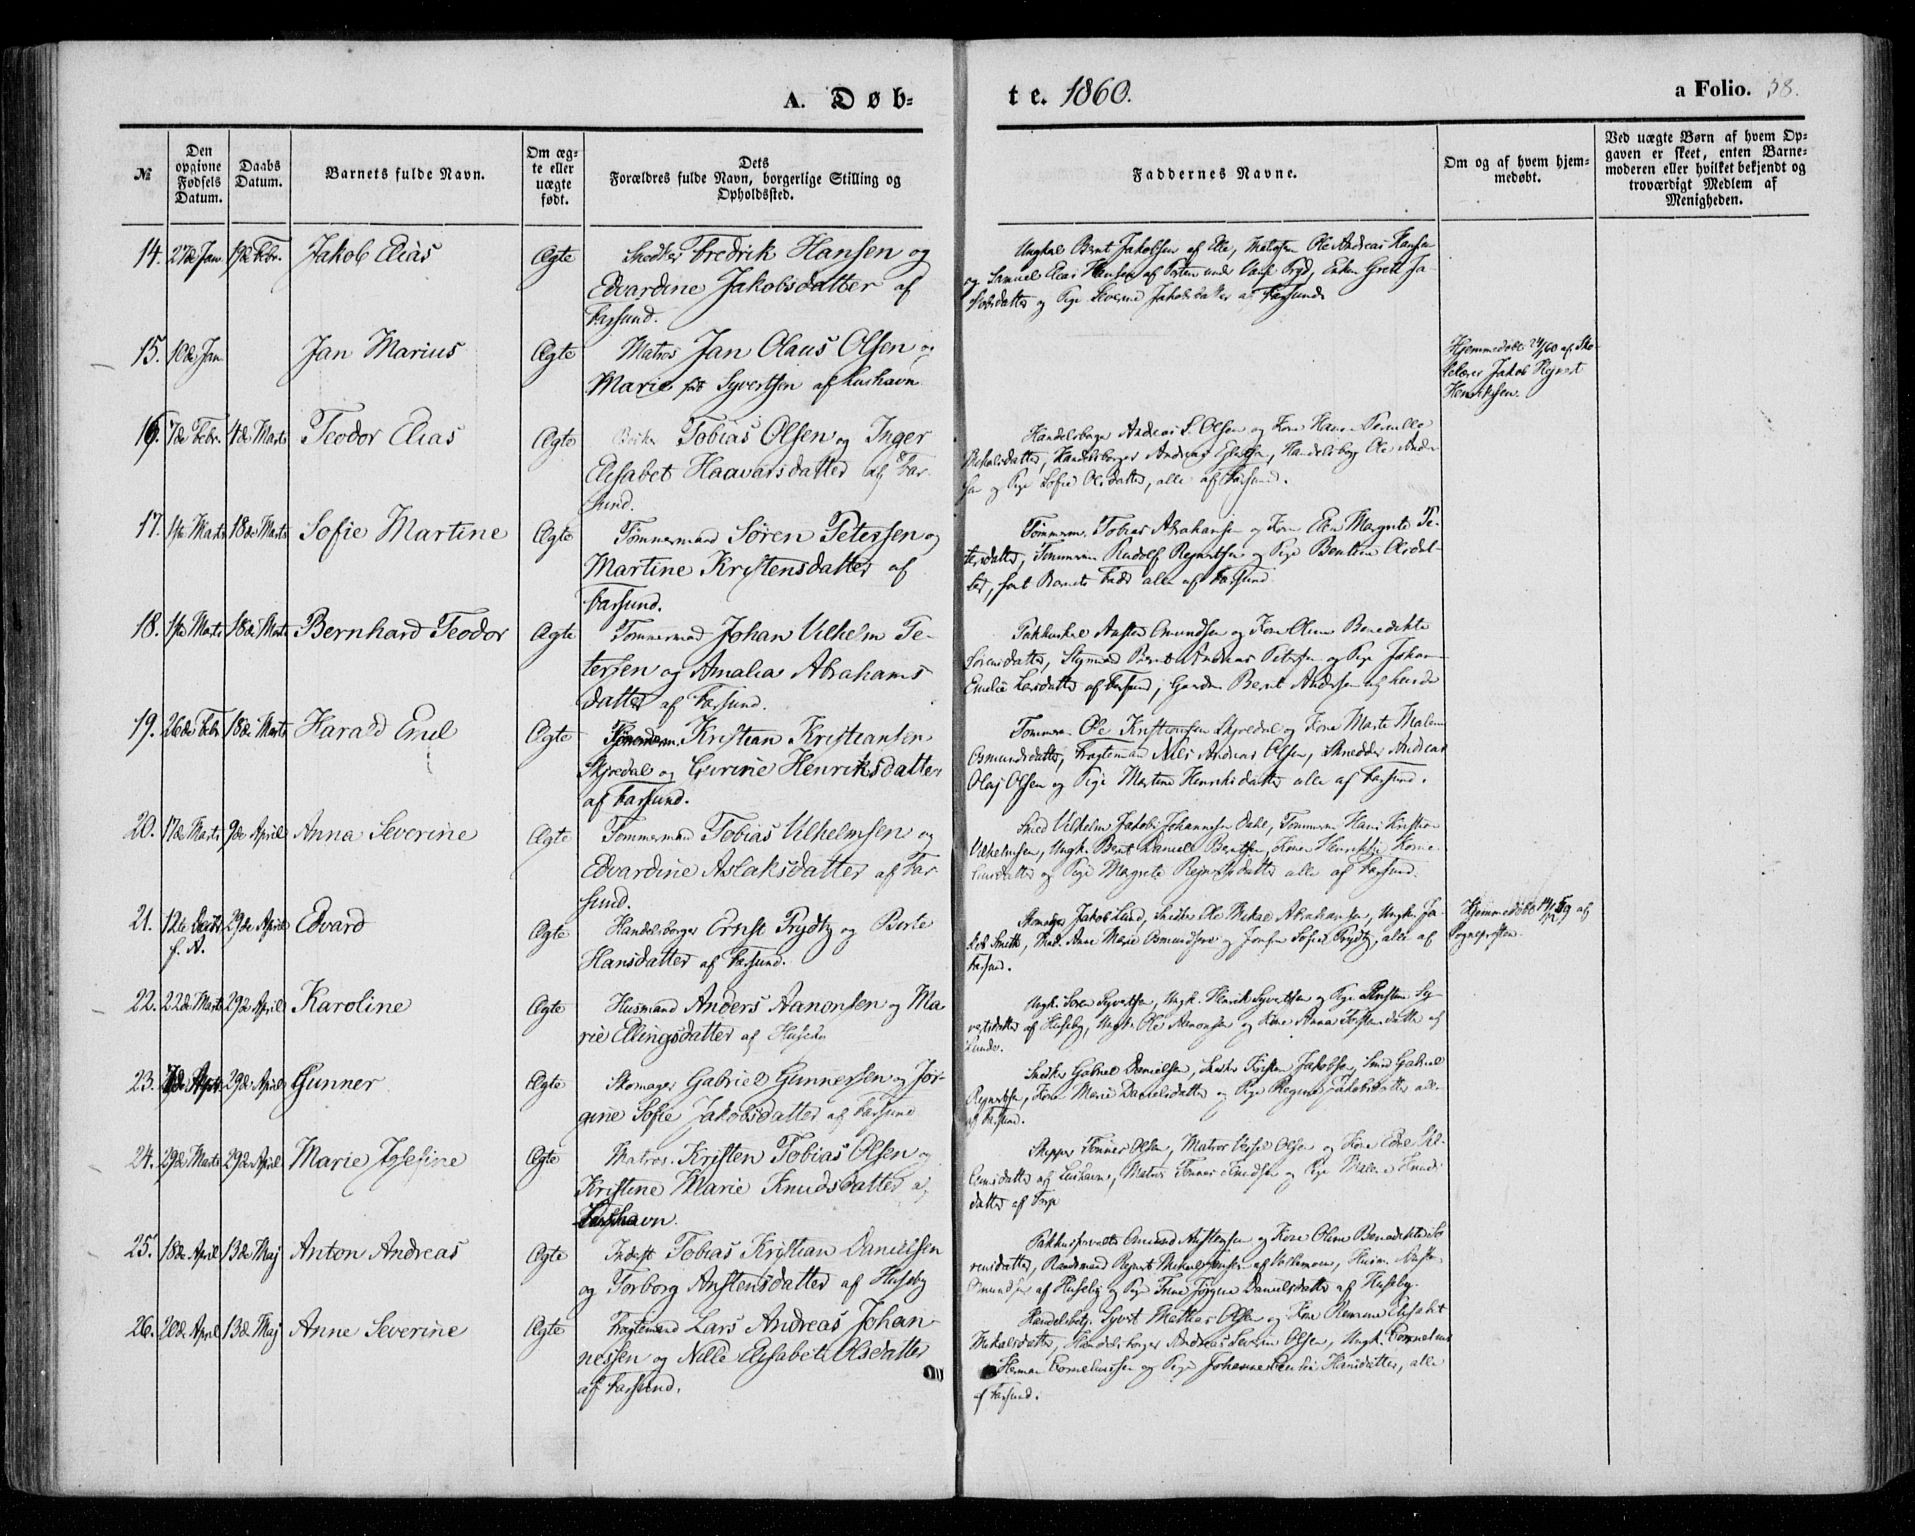 A. Døb-
te. 1860.
a Folio. 58.
№
Den opgivne Fødsels Datum.
Daabs Datum.
Barnets fulde Navn.
Om ægte eller uægte født.
Dets Forældres fulde Navn, borgerlige Stilling og Opholdssted.
Faddernes Navne.
Om og af hvem hjemmedøbt.
Ved uægte Børn af hvem Opgaven er skeet, enten Barnemoderen eller hvilket bekjendt og troværdigt Medlem af Menigheden.
14. 27de Jan Febr. Jakob Elias Ægte Fredrik Hansen og
Edvardine Jakobsdatter af
Farsund.
Ungkal Bernt Jakobsen af Matros Ole Andreas Hansen
og Samuel Elias Hansen af Enken Grete Ja-
kobsdatter og Pige Severine Jakobsdatter af Farsund
15. 10de Jan Jan Marius Ægte Matros Jan Olaus Olsen og
Marie født Syvertsen af Lushavn
Hjemmedøbt af Sko-
lelærer Jakob Rejnert
Henriksen.
16. 7de Febr. 4de Marts Teodor Elias Ægte Tobias Olsen og Inger
Elisabet Haavarsdatter af Far-
sund.
Handelsborger Andreas S. Olsen og Kone
Mikalsdatter, Handelsborger Andreas Handelsborg Ole
og Pige Sofie Olsdatter, alle af Farsund.
17. 1ste Marts 18de Marts Sofie Martine Ægte Tømmermand Søren Petersen og
Martine Kristensdatter af
Farsund.
Tømmerm. Tobias Abrahamsen og Kone Elen Margrete Pe-
tersdatter, Tømmerm Rudolf Rejnertsen og Pige
samt Barnets Fader alle af Farsund.
18. 1ste Marts 18de Marts Bernhard Teodor Ægte Tømmermand Johan Vilhelm Pe-
tersen og Amalia Abrahams
datter af Farsund.
Omundsen og Kone Oline Benedikte
Sørensdatter, Bernt Andreas Petersen og Pige Johan-
Emilie Larsdatter af Farsund, Bernt Andersen
19. 26de Febr 18de Marts Harald Emil Ægte Tømmerm. Kristian Kristiansen
Skjredal og Gurine Henriksdatter
af Farsund.
Tømmerm Ole Kristiansen Skjredal og Kone Marte Malene
Osmundsdatter, Fragtemand Nils Andreas Olsen, Skredder Andreas
Olaj Olsen og Pige Martine Henriksdatter alle af Farsund.
20. 17de Marts 9de April Anna Severine Ægte Tømmermand Tobias Vilhelmsen og
Edvardine Aslaksdatter af Far-
sund.
Smed Vilhelm Jakob Johannesen Tømmerm Hans Kristian
Vilhelmsen, Ungk. Bernt Daniel Berntsen, Kone Henrikke Korne-
liusdatter og Pige Margrete Rejnertsdatter alle af Farsund.
21. 12te f. A. 29de April Edvard Ægte Handelsborger Ernst Prydtz og Berte
Hansdatter af Farsund.
Skomager Jakob Lund, Ole Mikal Abrahamsen, Ungk. Ja-
kob Smith, Anne Marie Osmundsen og Jomfru Sofie Prydtz, alle af
Farsund.
Hjemmedøbt af
Sogneprsten.
22. 22de Marts 29de April Karoline Ægte Husmand Anders Aanonsen og Ma
rie Ellingsdatter af Huseby
Ungk. Søren Syvertsen, Ungk. Henrik Syvertsen og Pige Kirstine Sy-
vertsdatter af Huseby, Ungk. Ole Aanonsen og Kone Anna datter af
Lunde.
23. 29de April Gunner Ægte Skomager Gabriel Gunnersen og Jør-
gine Sofie Jakobsdatter af Farsund
Gabriel Danielsen, Kristen Jakobsen, Smed Gabriel
Rejnertsen, Kone Marie Danielsdatter og Pige Regine Jakobsdatter alle
af Farsund.
24. 29de Marts 29de April Marie Josefine Ægte Matros Kristen Tobias Olsen og
Kristine Marie Knudsdatter af
Lushavn.
Skipper Tønnes Olsen, Matros Olsen og Kone
af Lushavn, Matros Tønnes Knudsen og Pige Malene Knuds
datter af
25. 18de April 13de Maj Anton Andreas Ægte Inderst Tobias Kristian Danielsen
og Torborg Anstensdatter af Huseby
Omund Anstensen og Kone Oline Benedikte Sø
rensdatter, Rejnert Mikalsen af
Omundsen af Huseby og Pige Trine Jørgine Danielsdatter af Huseby.
26. 20de April 13de Maj Anne Severine Ægte Fragtemand Lars Andreas Johan-
nessen og Nille Elisabet Olsdatter
af Farsund.
Handelsborg. Syvert Matias Olsen og Kone Elisabet
Mikalsdatter, Handelsborger Andreas Severin Olsen, Ungk. Cornelius
Herman Corneliussen og Pige Johanne Hansdatter, alle
af Farsund.